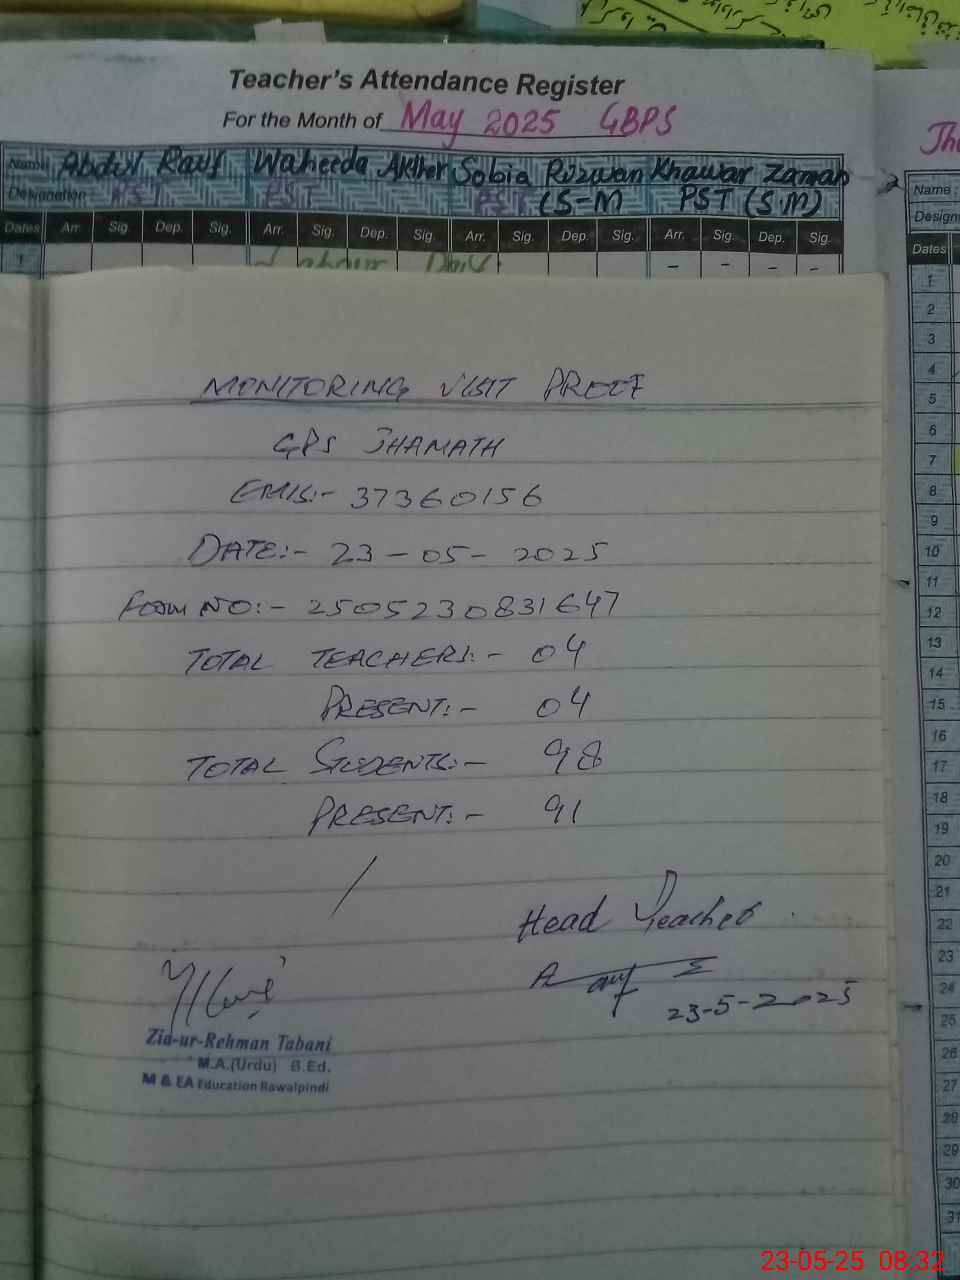 Teacher's Attendance Register
For the Month of May 2025 GBPS
Name Abdul Rauf Waheeda Akhter Sobia Rizwan Khawar Zaman
Designation PST PST PST (S-M PST (S.M)
Dates Arr. Sig. Dep. Sig. Arr. Sig. Dep. Sig. Arr. Sig. Dep. Sig. Arr. Sig. Dep. Sig.
1 Labour Day - - - -
MONITORING VISIT PROOF
GPS JHAMATH
EMIS:- 37360156
DATE:- 23-05-2025
Form NO:- 2505230831647
TOTAL TEACHERS:- 04
PRESENT:- 04
TOTAL STUDENTS:- 98
PRESENT:- 91
Head Teacher
23-5-2025
Zia-ur-Rehman Tabani
M.A.(Urdu) B.Ed.
M & EA Education Rawalpindi
Name :
Design
Dates
1
2
3
4
5
6
7
8
9
10
11
12
13
14
15
16
17
18
19
20
21
22
23
24
25
26
27
28
29
30
31
23-05-25 08:32